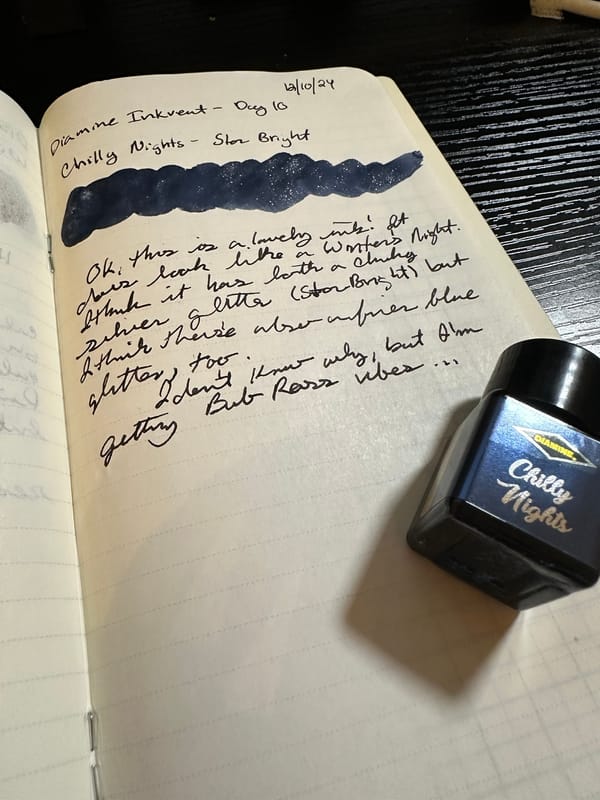 12/10/24
Diamine Inkvent - Day 10
Chilly Nights - Star Bright
OK, this is a lovely ink! It
does look like a winters night.
I think it has both a chunky
silver glitter (Star Bright) but
I think there's also a finer blue
glitter, too.
I don't know why, but I'm
getting Bob Ross vibes ...
DIAMINE
Chilly
Nights